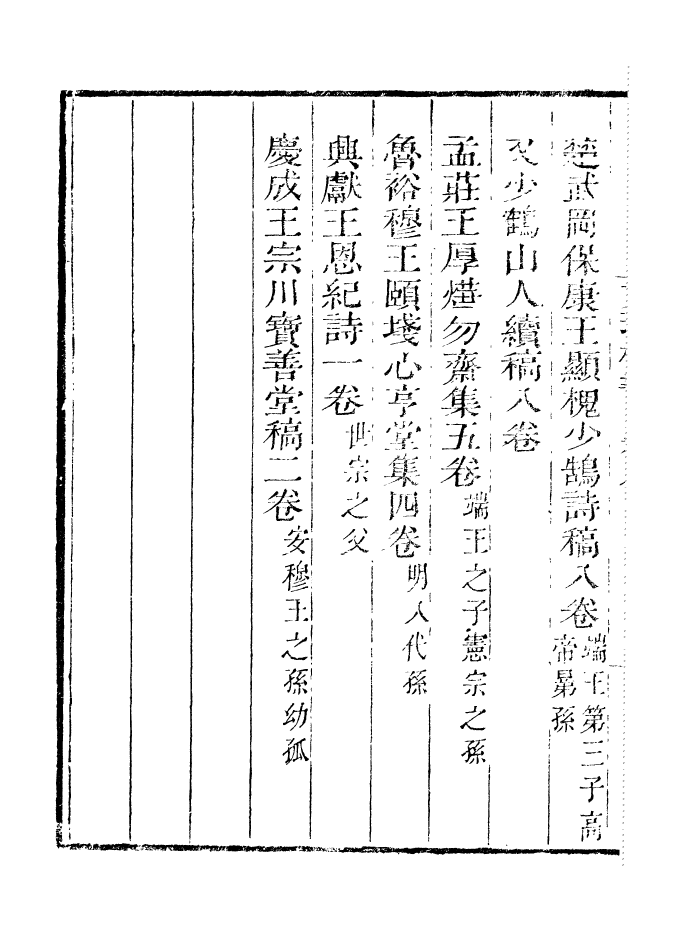 楚武岡保康王顯槐少鶴詩稿八卷端王第三子高帝曩孫
又少鶴山人續稿八卷
孟莊王厚燁勿齋集五卷端王之子憲宗之孫
魯裕穆王頤㙻心亨堂集四卷明八代孫
興獻王恩紀詩一卷世宗之父
慶成王宗川寶善堂稿二卷安穆王之孫幼孤